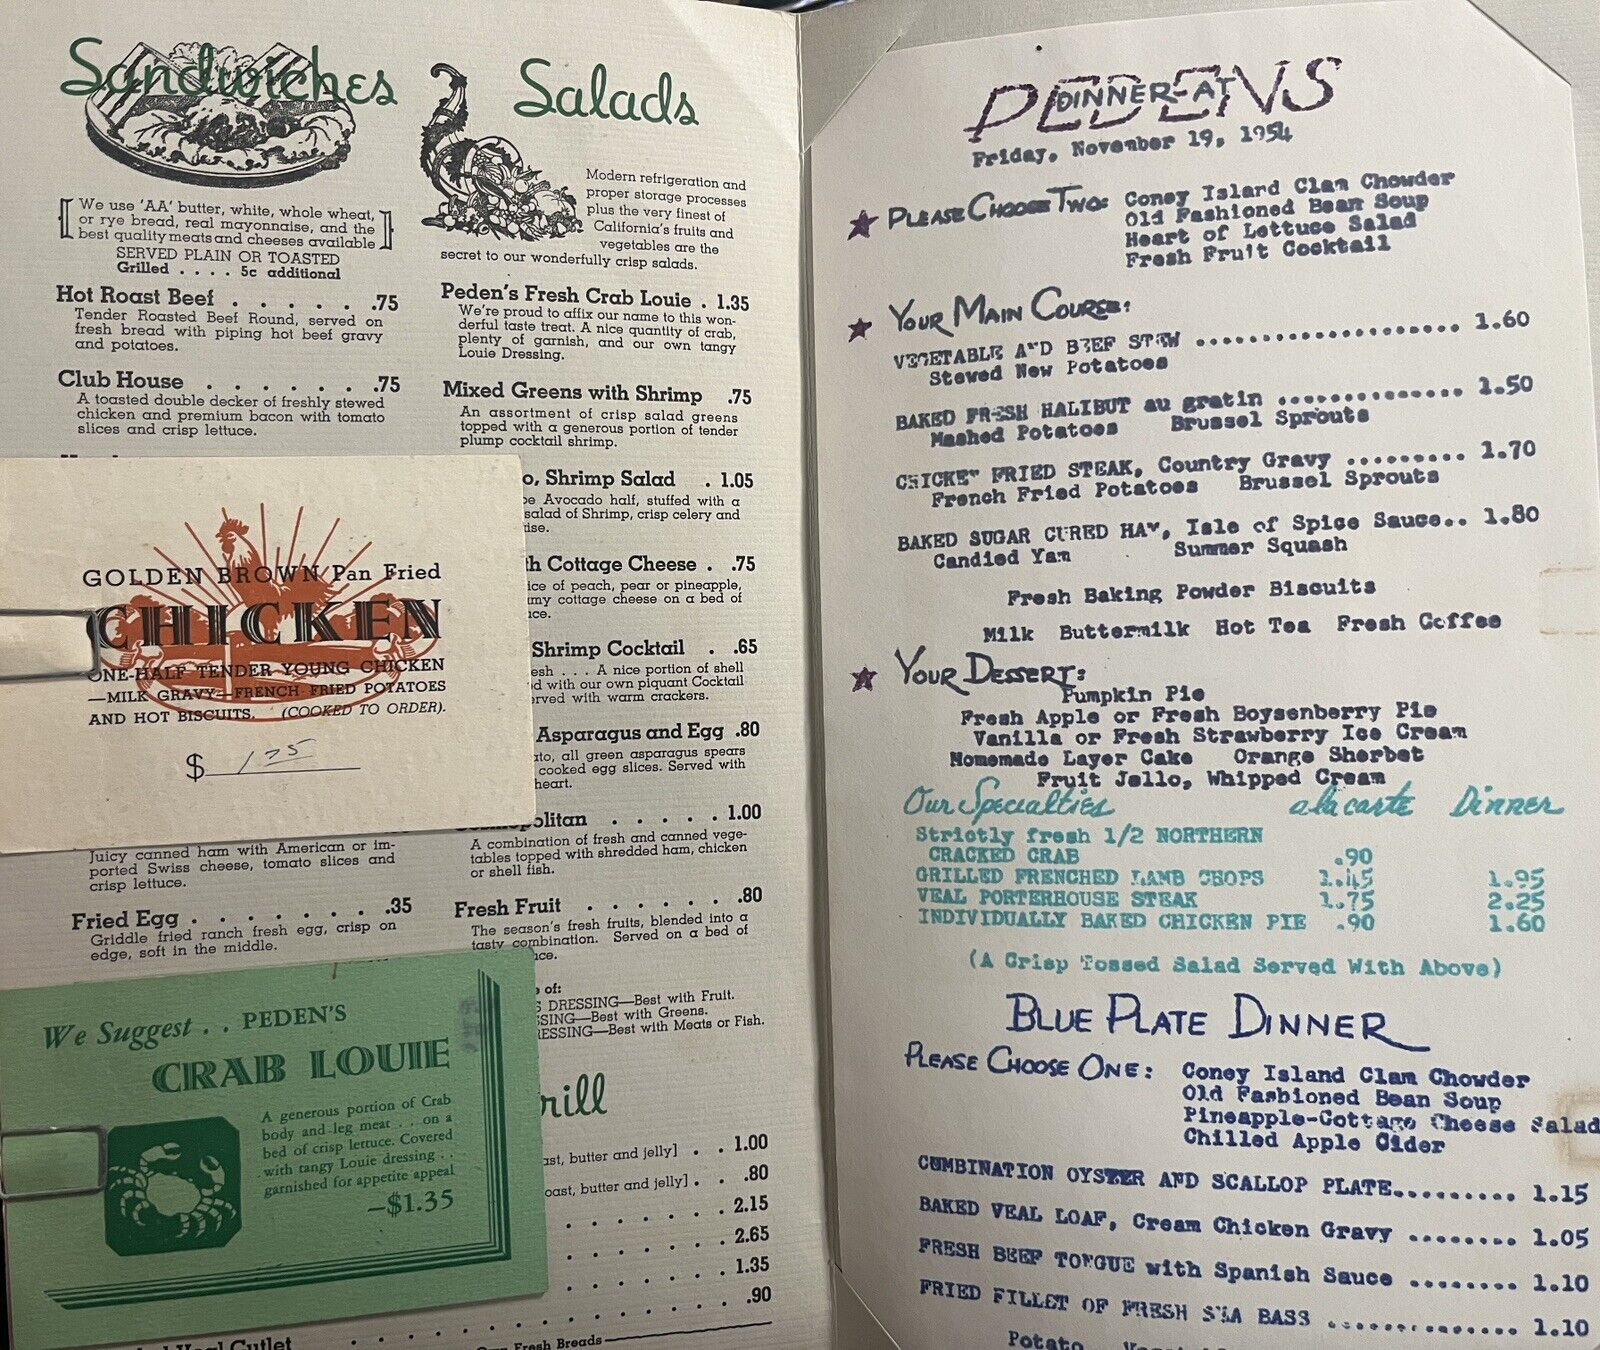 Sandwiches
We use 'AA' butter, white, whole wheat,
or rye bread, real mayonnaise, and the
best quality meats and cheeses available
SERVED PLAIN OR TOASTED
Grilled . . . . 5c additional
Hot Roast Beef . . . . . . .75
Tender Roasted Beef Round, served on
fresh bread with piping hot beef gravy
and potatoes.
Club House . . . . . . . .75
A toasted double decker of freshly stewed
chicken and premium bacon with tomato
slices and crisp lettuce.
GOLDEN BROWN Pan Fried
CHICKEN
ONE-HALF TENDER YOUNG CHICKEN
—MILK GRAVY—FRENCH FRIED POTATOES
AND HOT BISCUITS. (COOKED TO ORDER).
$ 1.75
Juicy canned ham with American or im-
ported Swiss cheese, tomato slices and
crisp lettuce.
Fried Egg . . . . . . . . .35
Griddle fried ranch fresh egg, crisp on
edge, soft in the middle.
We Suggest . . PEDEN'S
CRAB LOUIE
A generous portion of Crab
body and leg meat . . on a
bed of crisp lettuce. Covered
with tangy Louie dressing . .
garnished for appetite appeal
—$1.35
Veal Cutlet
Salads
Modern refrigeration and
proper storage processes
plus the very finest of
California's fruits and
vegetables are the
secret to our wonderfully crisp salads.
Peden's Fresh Crab Louie . 1.35
We're proud to affix our name to this won-
derful taste treat. A nice quantity of crab,
plenty of garnish, and our own tangy
Louie Dressing.
Mixed Greens with Shrimp .75
An assortment of crisp salad greens
topped with a generous portion of tender
plump cocktail shrimp.
, Shrimp Salad . 1.05
Avocado half, stuffed with a
salad of Shrimp, crisp celery and
Cottage Cheese . .75
of peach, pear or pineapple,
cottage cheese on a bed of
Shrimp Cocktail . . .65
. . . A nice portion of shell
with our own piquant Cocktail
with warm crackers.
Asparagus and Egg .80
all green asparagus spears
cooked egg slices. Served with
heart.
. . . . . 1.00
A combination of fresh and canned vege-
tables topped with shredded ham, chicken
or shell fish.
Fresh Fruit . . . . . . .80
The season's fresh fruits, blended into a
tasty combination. Served on a bed of
of:
DRESSING—Best with Fruit.
—Best with Greens.
—Best with Meats or Fish.
butter and jelly] . . 1.00
butter and jelly] . . .80
2.15
2.65
1.35
.90
Own Fresh Breads
DINNER AT
PEDENS
Friday, November 19, 1954
PLEASE CHOOSE TWO: Coney Island Clam Chowder
Old Fashioned Bean Soup
Heart of Lettuce Salad
Fresh Fruit Cocktail
YOUR MAIN COURSE:
VEGETABLE AND BEEF STEW .................... 1.60
Stewed New Potatoes
BAKED FRESH HALIBUT au gratin .............. 1.50
Mashed Potatoes Brussel Sprouts
CHICKEN FRIED STEAK, Country Gravy ......... 1.70
French Fried Potatoes Brussel Sprouts
BAKED SUGAR CURED HAM, Isle of Spice Sauce.. 1.80
Candied Yam Summer Squash
Fresh Baking Powder Biscuits
Milk Buttermilk Hot Tea Fresh Coffee
YOUR DESSERT:
Pumpkin Pie
Fresh Apple or Fresh Boysenberry Pie
Vanilla or Fresh Strawberry Ice Cream
Homemade Layer Cake Orange Sherbet
Fruit Jello, Whipped Cream
Our Specialties a la carte Dinner
Strictly fresh 1/2 NORTHERN
CRACKED CRAB .90
GRILLED FRENCHED LAMB CHOPS 1.45 1.95
VEAL PORTERHOUSE STEAK 1.75 2.25
INDIVIDUALLY BAKED CHICKEN PIE .90 1.60
(A Crisp Tossed Salad Served With Above)
BLUE PLATE DINNER
PLEASE CHOOSE ONE: Coney Island Clam Chowder
Old Fashioned Bean Soup
Pineapple-Cottage Cheese Salad
Chilled Apple Cider
COMBINATION OYSTER AND SCALLOP PLATE......... 1.15
BAKED VEAL LOAF, Cream Chicken Gravy ........ 1.05
FRESH BEEF TONGUE with Spanish Sauce ........ 1.10
FRIED FILLET OF FRESH SEA BASS .............. 1.10
Potato